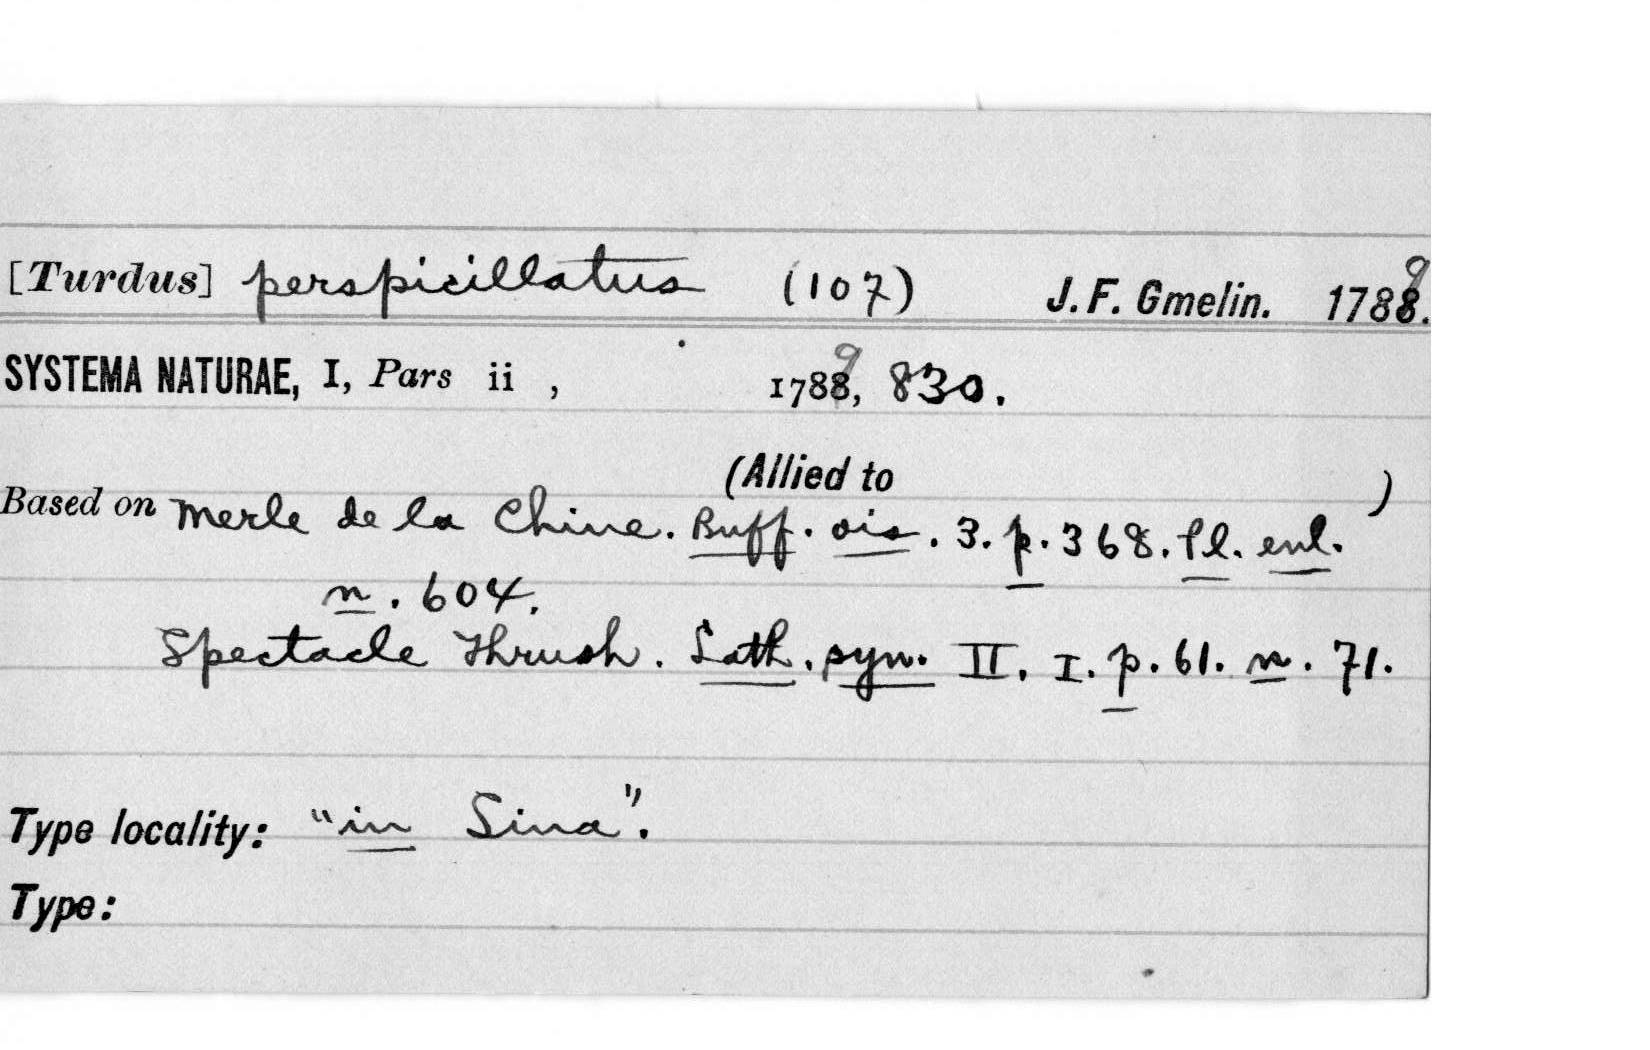 [Turdus] perspicillatus (107) J. F. Gmelin. 1789.
SYSTEMA NATURAE, I, Pars ii , 1789, 830.
(Allied to )
Based on Merle de la Chine. Buff. ois. 3. p. 368. pl. enl.
n. 604.
Spectacle Thrush. Lath. syn. II. I. p. 61. n. 71.
Type locality: "in Sina".
Type: